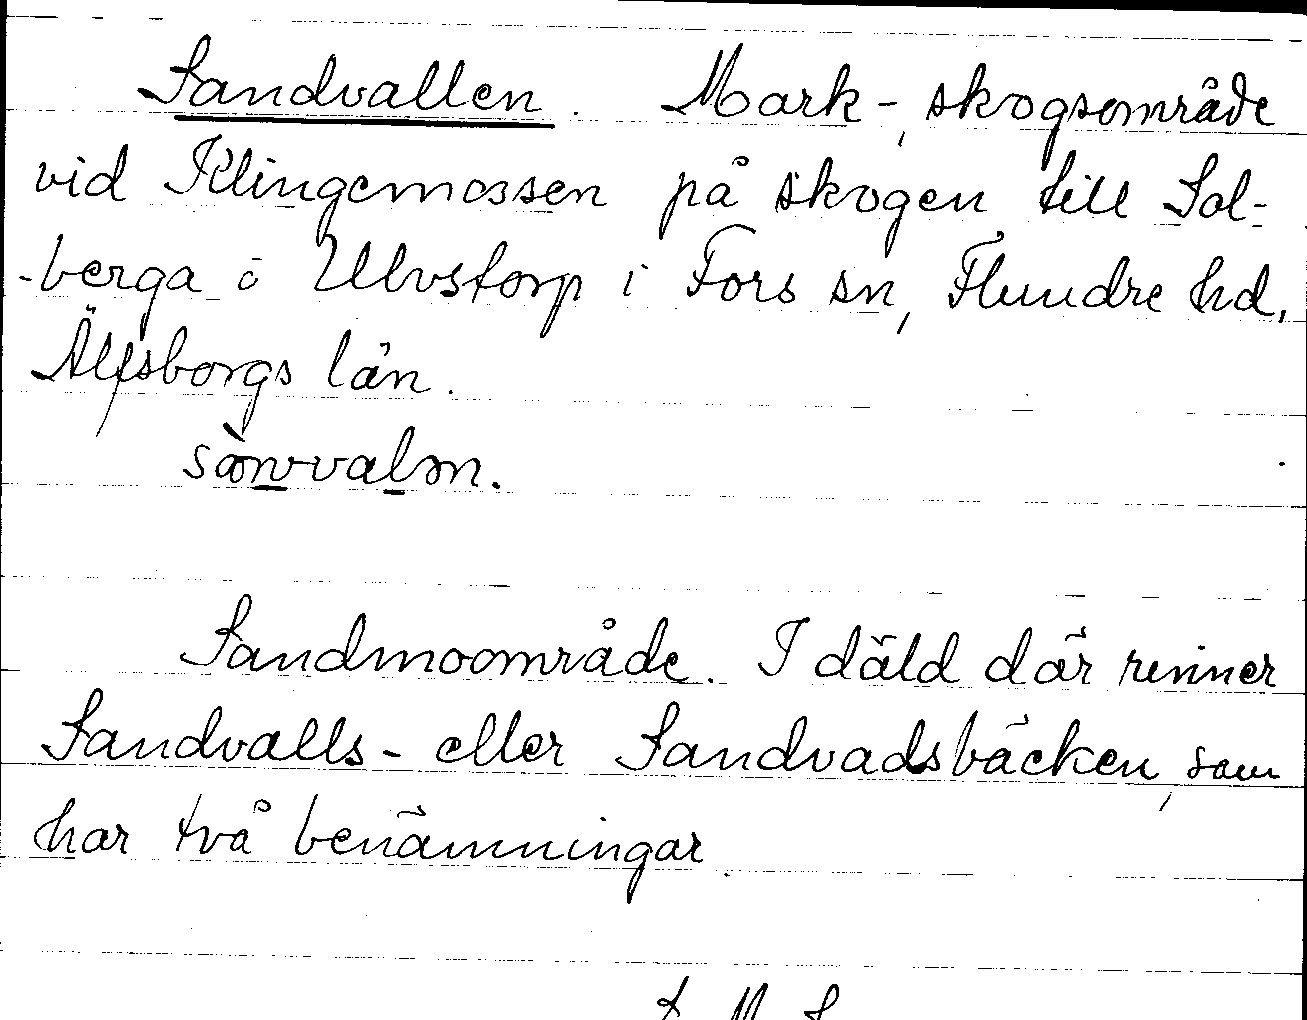 Sandvallen. Mark-, skogsområde
vid Klingemossen på skogen till Sol-
-berga o Ulvstorp i Fors sn, Flundre hd,
Älfsborgs län.
Sandmoområde. I däld där rinner
Sandvalls- eller Sandvadsbäcken, som
har två benämningar.